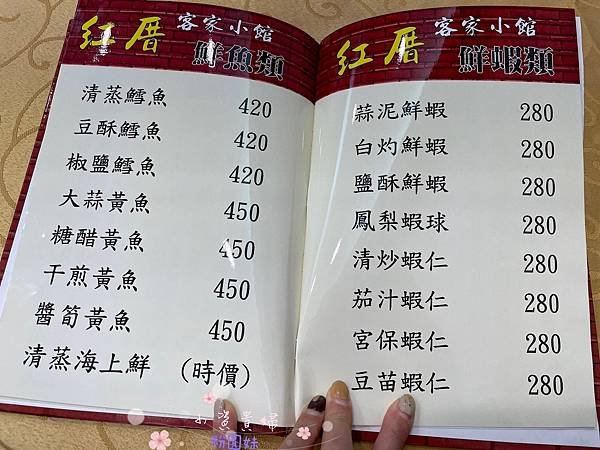 紅厝 客家小館
鮮魚類
清蒸鱈魚 420
豆酥鱈魚 420
椒鹽鱈魚 420
大蒜黃魚 450
糖醋黃魚 450
干煎黃魚 450
醬筍黃魚 450
清蒸海上鮮 (時價)
紅厝 客家小館
鮮蝦類
蒜泥鮮蝦 280
白灼鮮蝦 280
鹽酥鮮蝦 280
鳳梨蝦球 280
清炒蝦仁 280
茄汁蝦仁 280
宮保蝦仁 280
豆苗蝦仁 280
小資貴婦
粉圓妹